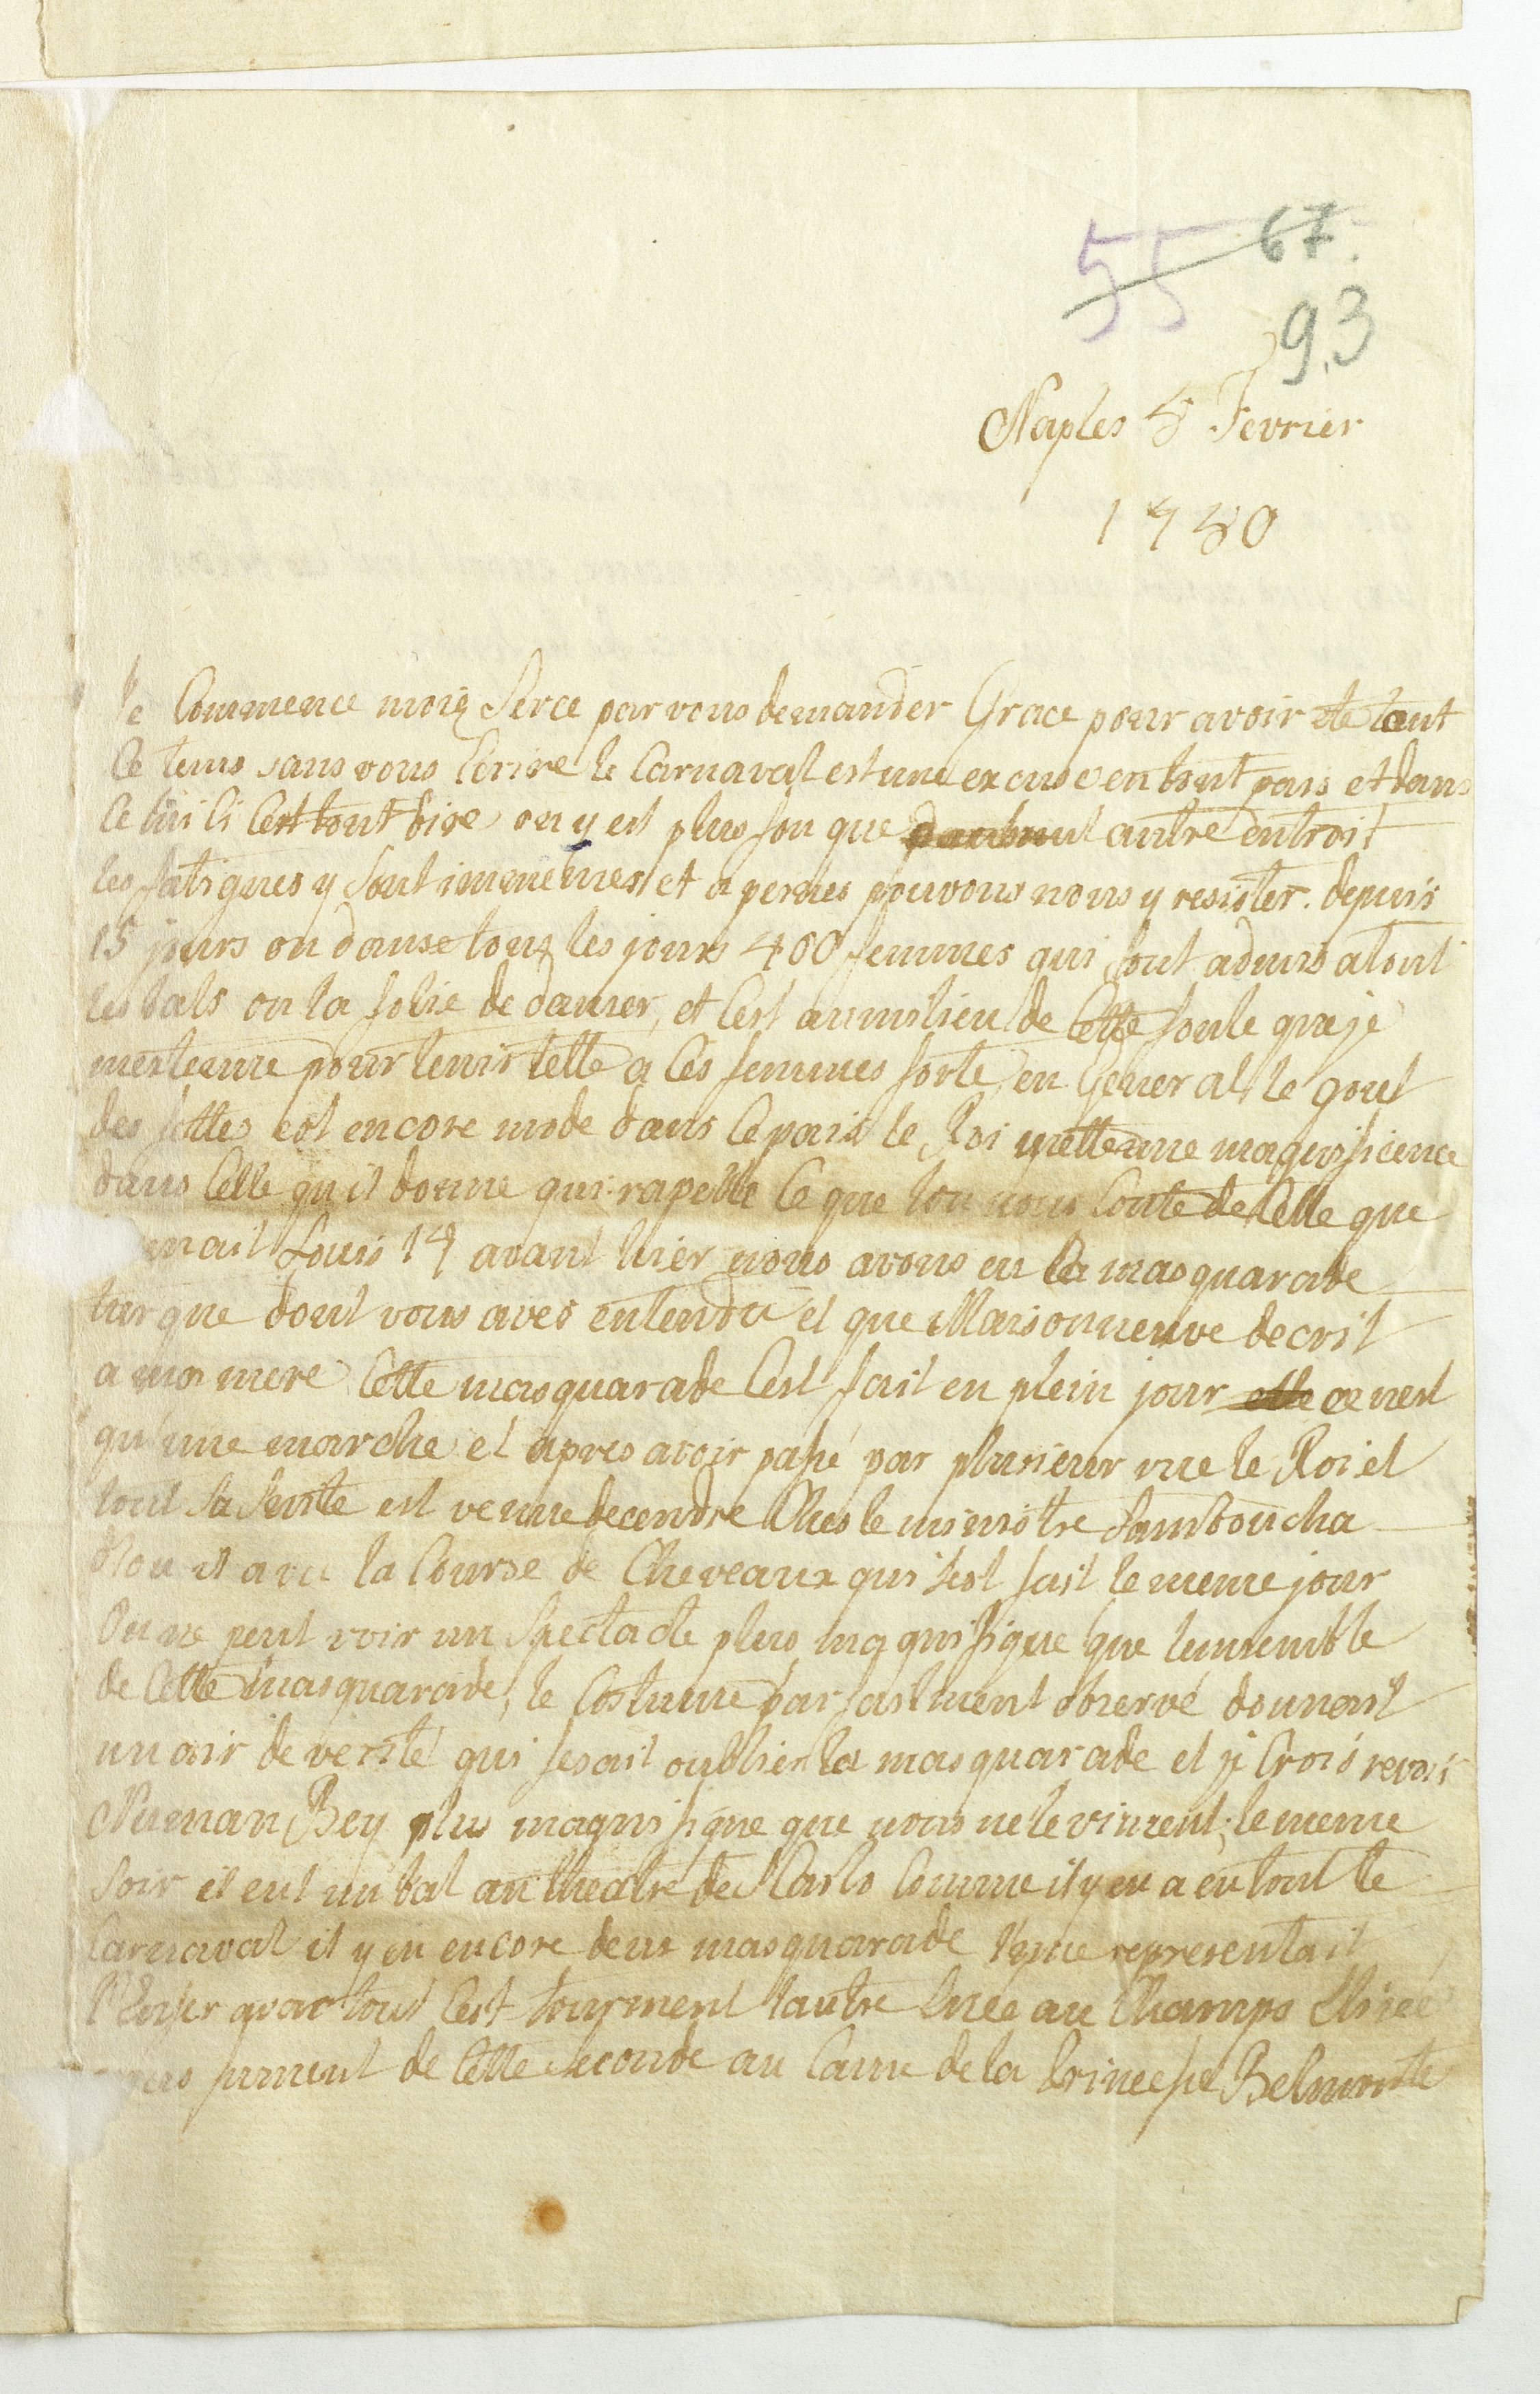 55 67.
93
Naples 8 Fevrier
1780
Je Commence mon Perce par vous demander Grace pour avoir ete tout
Ce tems sans vous Ecrire le Carnaval est une excuse en tout pais et dans
Ce lui Ci Cest tout dire on y est plus fou que autre entroit
les fatigues y sont immenses et a peines pouvons nous y resister. depuis
15 jours on danse tous les jours 400 femmes qui sont admis a tout
les bals on la folie de danser, et Cest au milieu de Cette foule que je
pour tenir tette a Ces femmes forte, en General le gout
des fettes est encore mode dans Ce pais le Roi mette une magnificence
dans Celle qu'il donne qui rapelle Ce que lon nous Conte de Celle que
Louis 14 avant hier nous avons eu la masquarade
turque dont vous aves entendu et que Maisonneuve decrit
a ma mere Cette masquarade Cest fait en plein jour elle ce nest
qu'une marche et apres avoir passé par plusieur rue le Roi et
tout sa suite est venue decendre Ches le ministre Samboucha
Dou il a vu la Course de Cheveaux qui sest fait le meme jour
On ne peut voir un Spectacle plus magnifique que lensemble
de Cette masquarade, le Costume parfaitment observé donnait
un air de verité qui fesait oublier la masquarade et je Crois revoir
Numan Bey plus magnifique que nous ne le vimrent, le meme
Soir il eut un bal au theatre de St Carlo Comme il y en a eu tout le
Carnaval il y eu encore deux masquarade l'une representait
l'Enfer avec tout Cest tourment lautre Enée au Champs Elisée
nous fument de Cette seconde au Came de la Princesse Belmonte